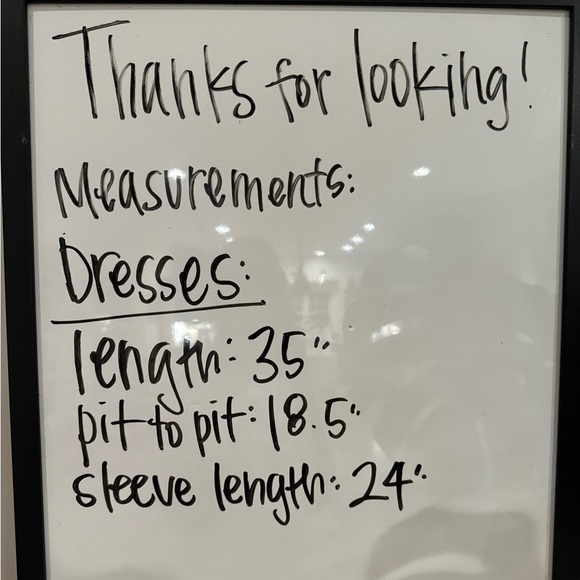 Thanks for looking!
Measurements:
Dresses:
length: 35"
pit to pit: 18.5"
sleeve length: 24"